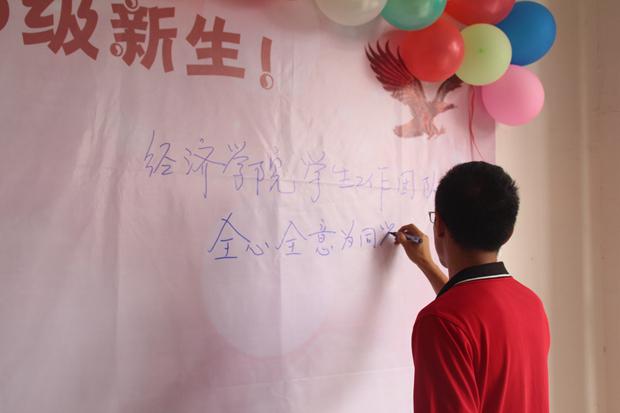 级新生!
经济学院学生工作团队
全心全意为同学